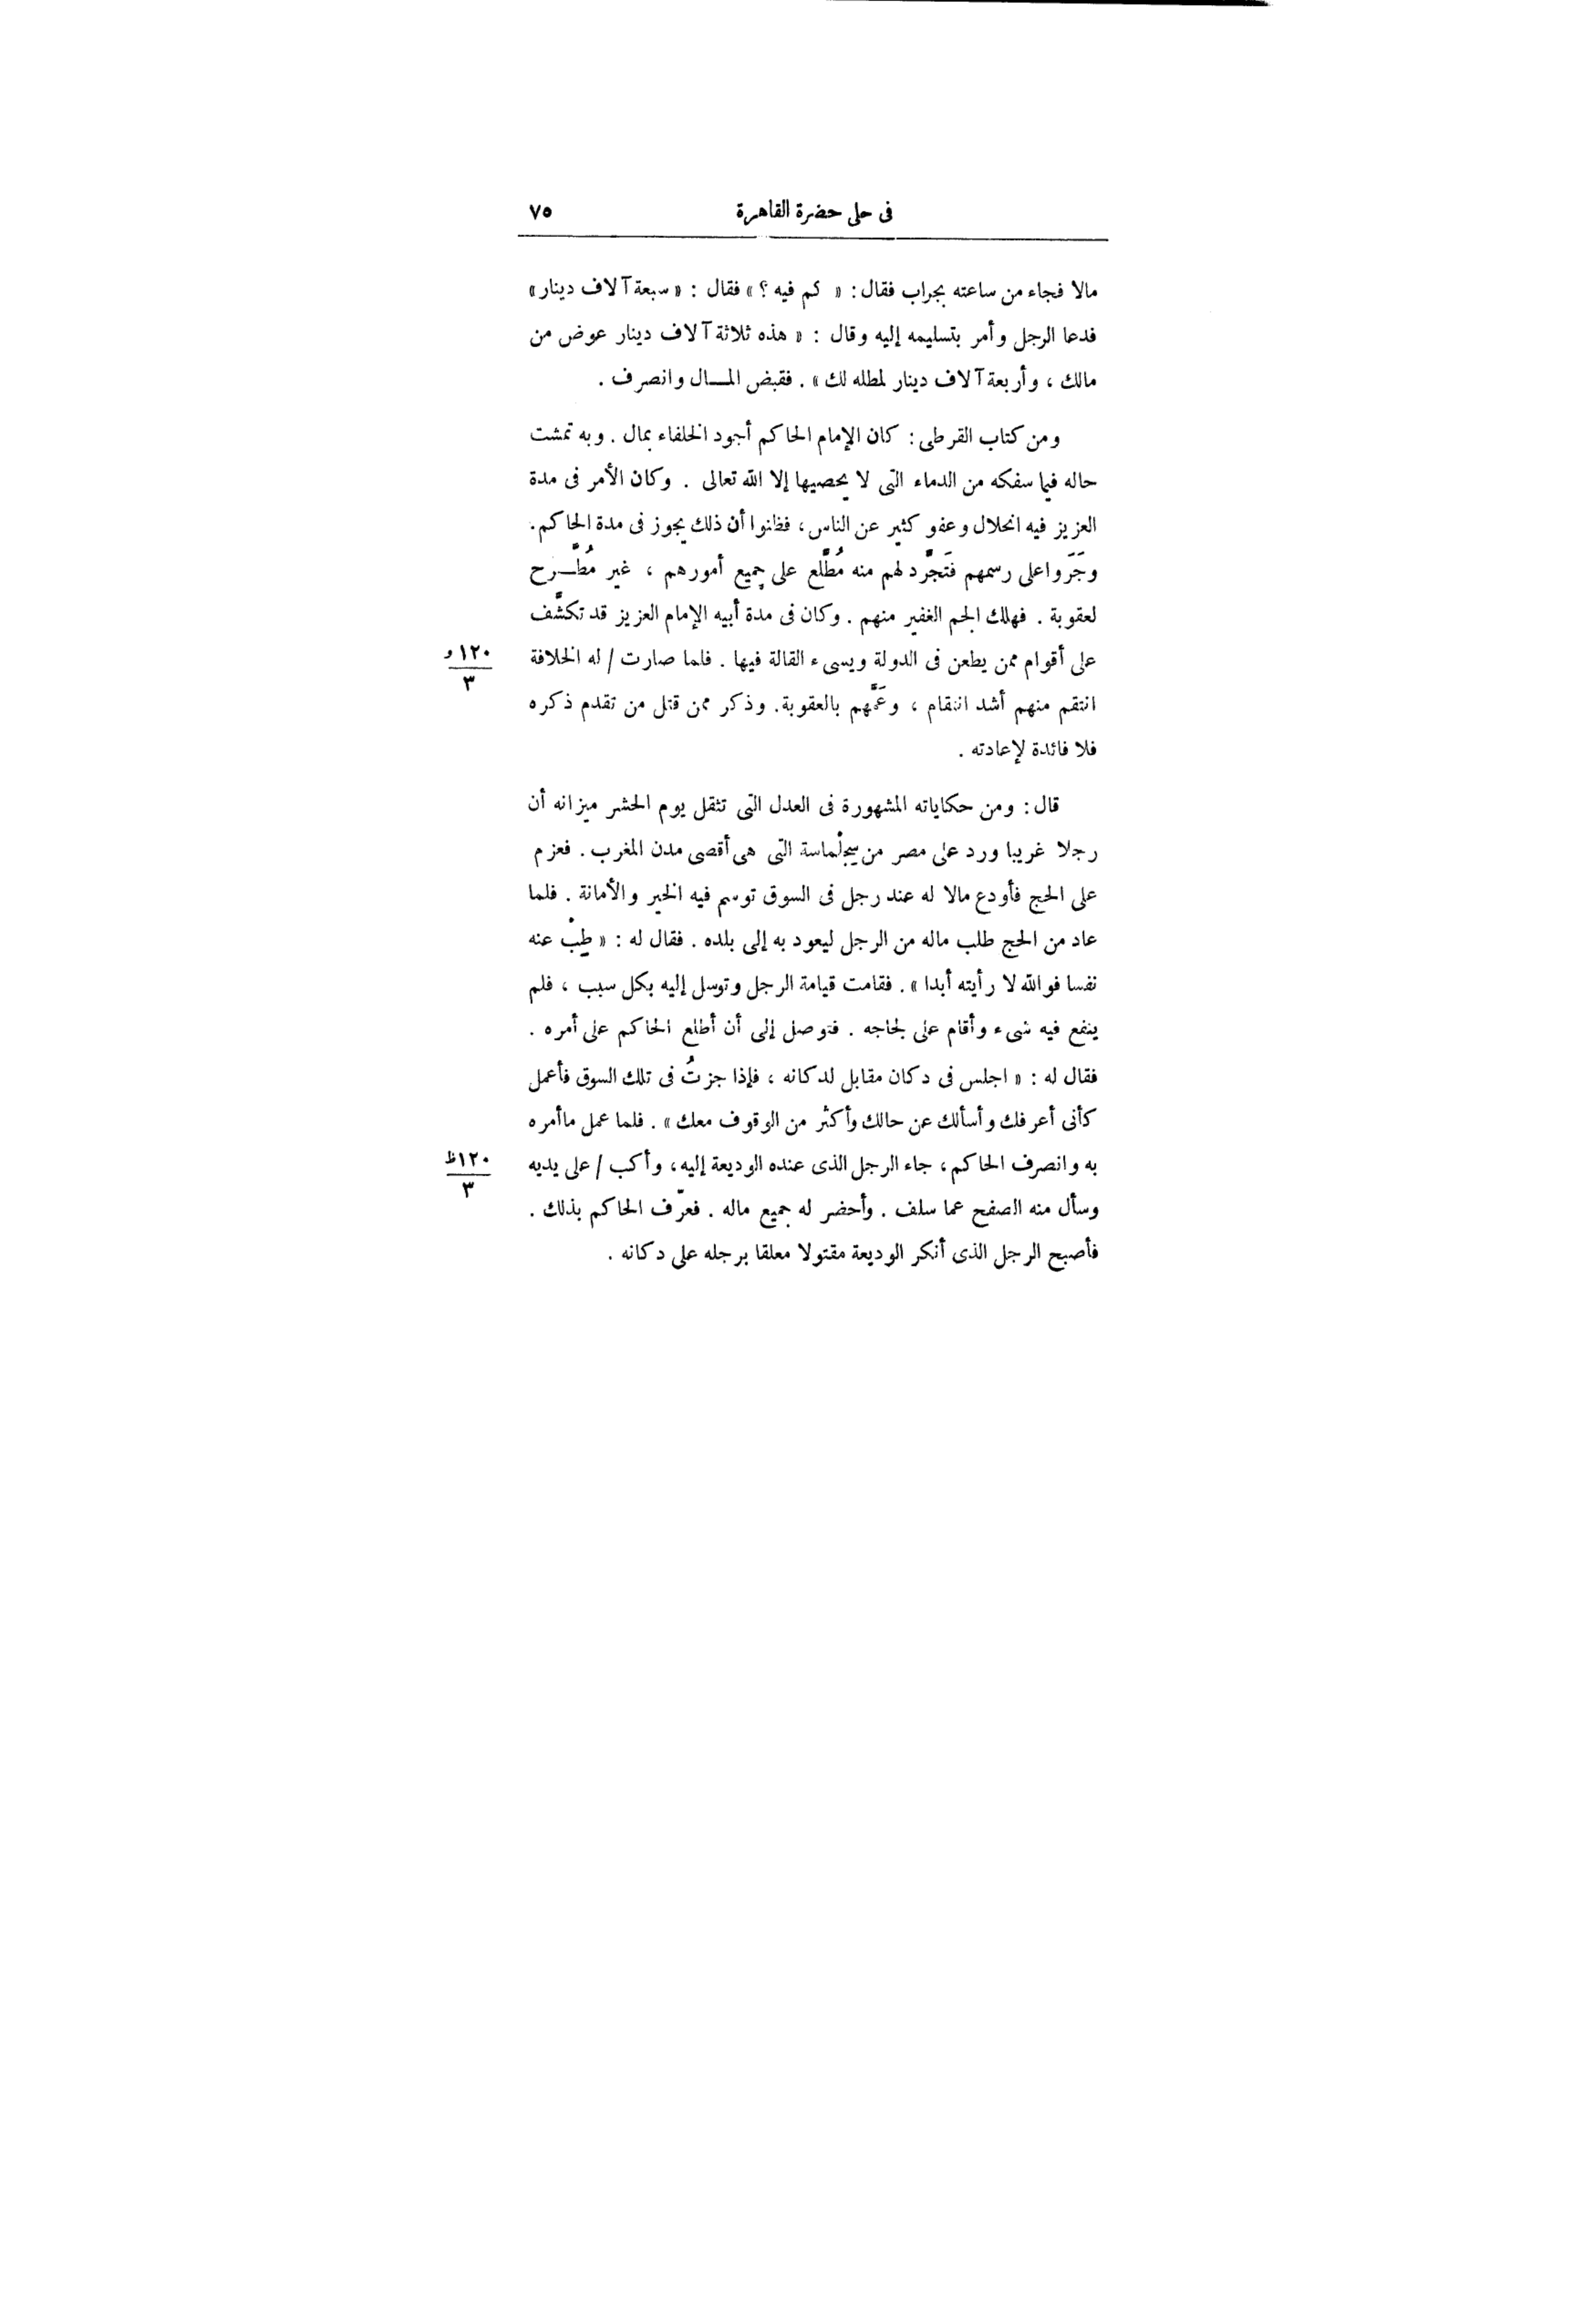 فى حلى حضرة القاهرة ٧٥
مالا فجاء من ساعته بجراب فقال : « كم فيه ؟ » فقال : « سبعة آلاف دينار »
فدعا الرجل وأمر بتسليمه إليه وقال : « هذه ثلاثة آلاف دينار عوض من
مالك ، وأربعة آلاف دينار لمطله لك » . فقبض المــال وانصرف .
ومن كتاب القرطى : كان الإمام الحاكم أجود الخلفاء بمال . وبه تمشت
حاله فيما سفكه من الدماء التى لا يحصيها إلا الله تعالى . وكان الأمر فى مدة
العزيز فيه انحلال وعفو كثير عن الناس ، فظنوا أن ذلك يجوز فى مدة الحاكم .
وجَرَوا على رسمهم فتَجَرَّد لهم منه مُطَّلع على جميع أمورهم ، غير مُطَّــرح
لعقوبة . فهلك الجم الغفير منهم . وكان فى مدة أبيه الإمام العزيز قد تكشَّف
على أقوام ممن يطعن فى الدولة ويسىء القالة فيها . فلما صارت / له الخلافة
١٢٠ و
٣
انتقم منهم أشد انتقام ، وعَمَّهم بالعقوبة . وذكر ممن قتل من تقدم ذكره
فلا فائدة لإعادته .
قال : ومن حكاياته المشهورة فى العدل التى تثقل يوم الحشر ميزانه أن
رجلا غريبا ورد على مصر من سِجِلْماسة التى هى أقصى مدن المغرب . فعزم
على الحج فأودع مالا له عند رجل فى السوق توسم فيه الخير والأمانة . فلما
عاد من الحج طلب ماله من الرجل ليعود به إلى بلده . فقال له : « طِبْ عنه
نفسا فوالله لا رأيته أبدا » . فقامت قيامة الرجل وتوسل إليه بكل سبب ، فلم
ينفع فيه شىء وأقام على لجاجه . فتوصل إلى أن أطلع الحاكم على أمره .
فقال له : « اجلس فى دكان مقابل لدكانه ، فإذا جزتُ فى تلك السوق فأعمل
كأنى أعرفك وأسألك عن حالك وأكثر من الوقوف معك » . فلما عمل ما أمره
به وانصرف الحاكم ، جاء الرجل الذى عنده الوديعة إليه ، وأكب / على يديه
١٢٠ ظ
٣
وسأل منه الصفح عما سلف . وأحضر له جميع ماله . فعرّف الحاكم بذلك .
فأصبح الرجل الذى أنكر الوديعة مقتولا معلقا برجله على دكانه .